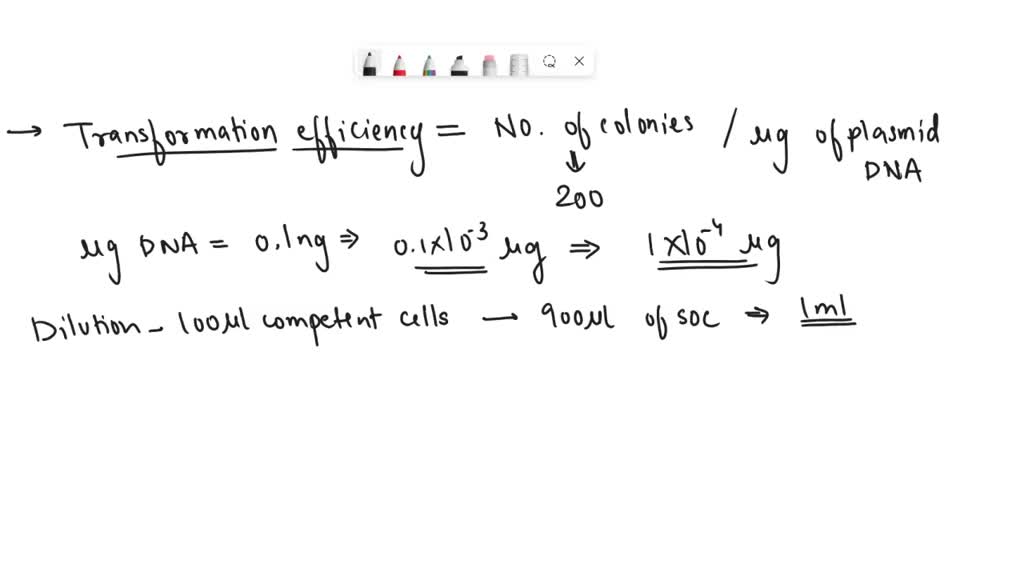 → Transformation efficiency = No. of colonies / μg of plasmid DNA
↓
200
μg DNA = 0.1ng ⇒ 0.1x10⁻³ μg ⇒ 1x10⁻⁴ μg
Dilution - 100μl competent cells → 900μl of soc ⇒ 1ml